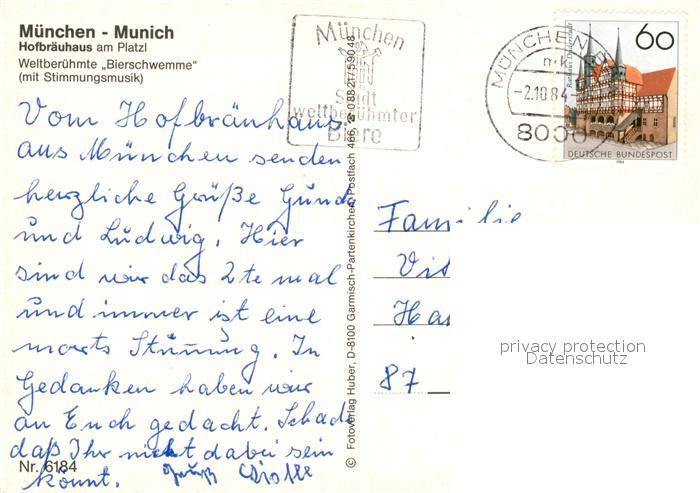 München - Munich
Hofbräuhaus am Platzl
Weltberühmte „Bierschwemme"
(mit Stimmungsmusik)
München
Stadt
weltberühmter
Biere
MÜNCHEN
-2.10.84
8000
60
DEUTSCHE BUNDESPOST
Vom Hofbräuhaus
aus München senden
herzliche Grüße
und Ludwig. Hier
sind wir das 2te mal
und immer ist eine
morts Stimmung. In
Gedanken haben wir
an Euch gedacht. Schade
daß Ihr nicht dabei sein
könnt.
Nr. 6184
© Fotoverlag Huber, D-8100 Garmisch-Partenkirchen, Postfach 466, ☎ 08821/59048
Familie
Vit
Ha
87
privacy protection
Datenschutz